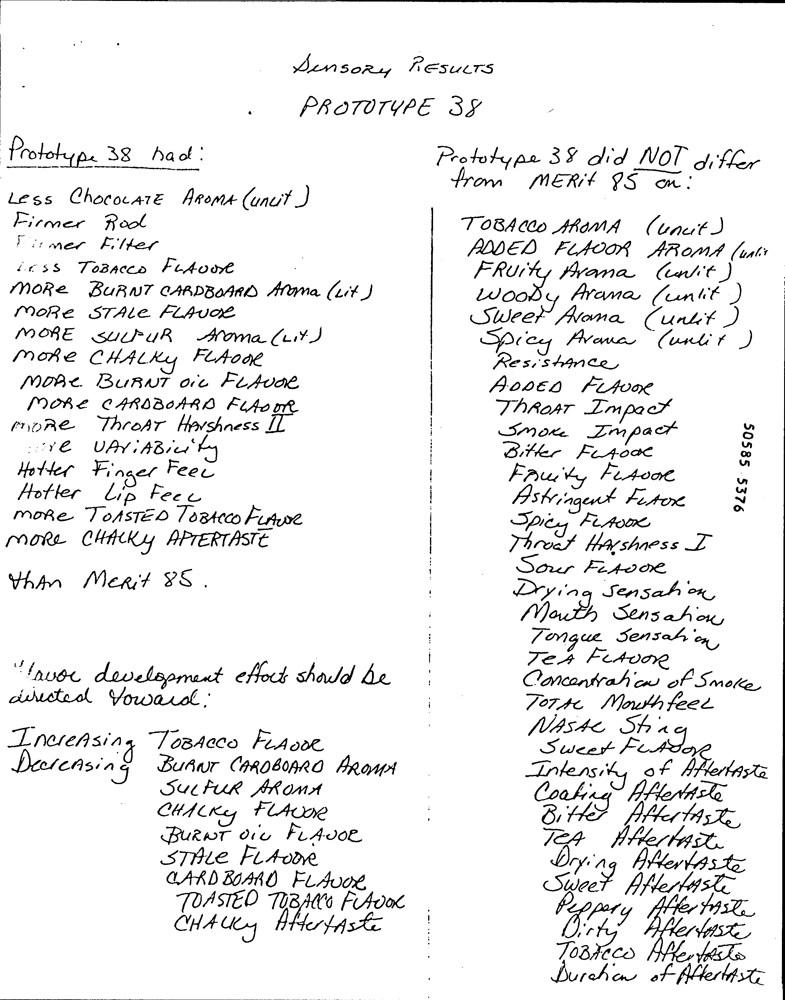 Sensory Results
PROTOTYPE 38
Prototype 38 had:
Less Chocolate Aroma (unlit)
Firmer Rod
Firmer Filter
Less Tobacco Flavor
More Burnt Cardboard Aroma (Lit)
More Stale Flavor
More Sulfur Aroma (Lit)
More Chalky Flavor
More Burnt Oil Flavor
More Cardboard Flavor
More Throat Harshness II
Variability
Hotter Finger Feel
Hotter Lip Feel
More Toasted Tobacco Flavor
More Chalky Aftertaste
than Merit 85.
Flavor development effort should be
directed toward:
Increasing Tobacco Flavor
Decreasing Burnt Cardboard Aroma
Sulfur Aroma
Chalky Flavor
Burnt Oil Flavor
Stale Flavor
Cardboard Flavor
Toasted Tobacco Flavor
Chalky Aftertaste
Prototype 38 did NOT differ
from MERit 85 on:
Tobacco Aroma (unlit)
Added Flavor Aroma (unlit
Fruity Aroma (unlit)
Woody Aroma (unlit)
Sweet Aroma (unlit)
Spicy Aroma (unlit)
Resistance
Added Flavor
Throat Impact
Smoke Impact
Bitter Flavor
Fruity Flavor
Astringent Flavor
Spicy Flavor
Throat Harshness I
Sour Flavor
Drying Sensation
Mouth Sensation
Tongue Sensation
Tea Flavor
Concentration of Smoke
Total Mouthfeel
Nasal Sting
Sweet Flavor
Intensity of Aftertaste
Coating Aftertaste
Bitter Aftertaste
Tea Aftertaste
Drying Aftertaste
Sweet Aftertaste
Peppery Aftertaste
Dirty Aftertaste
Tobacco Aftertaste
Duration of Aftertaste
50585 5376